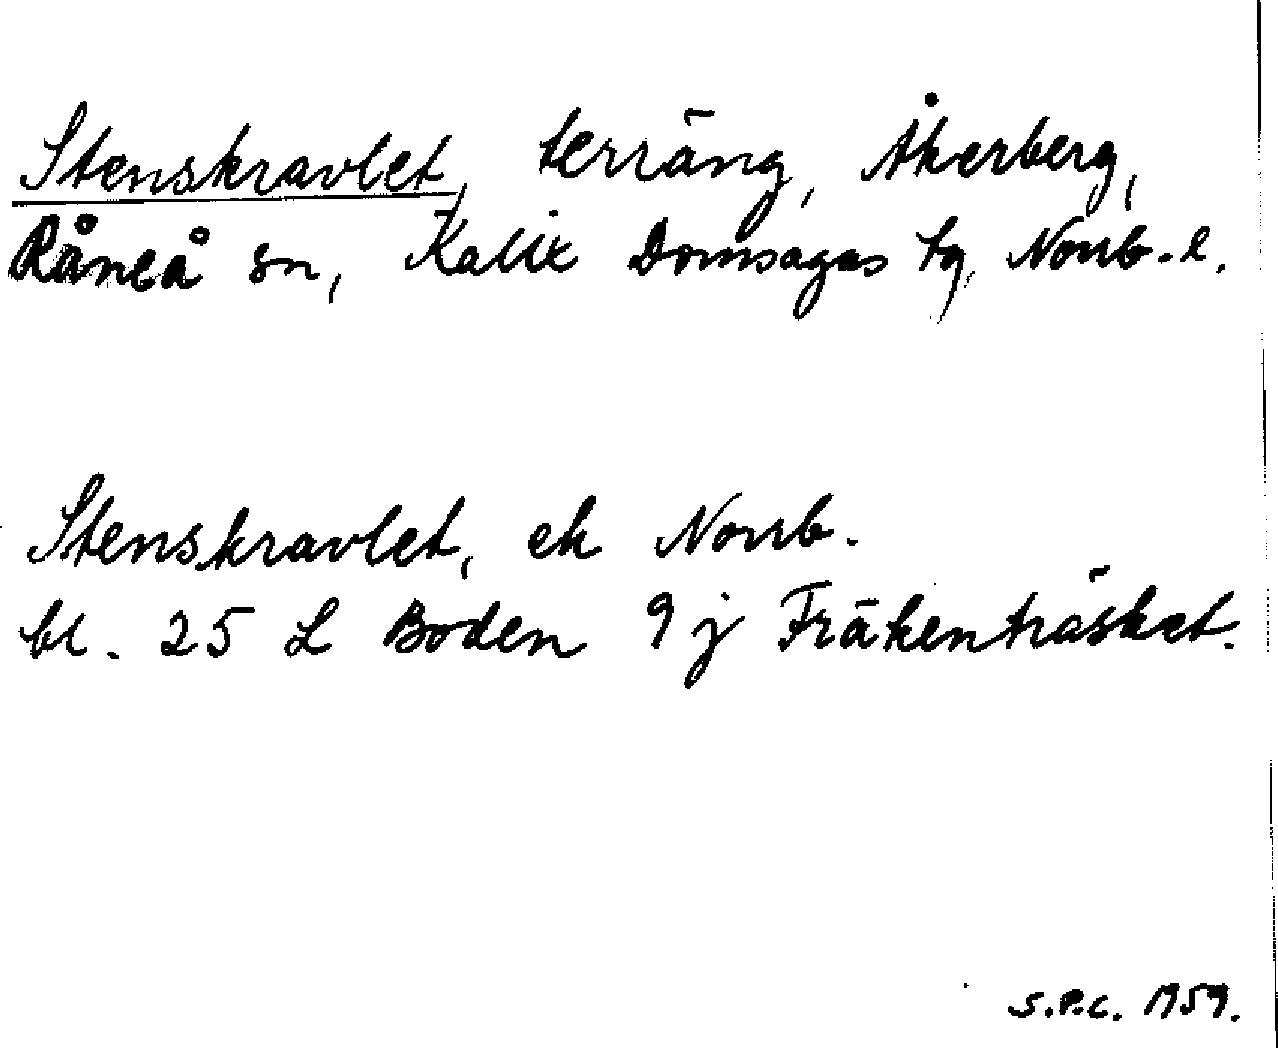 Stenskravlet, terräng, Åkerberg,
Råneå sn, Kalix Domsagas tg, Norrb. l.
Stenskravlet, ek Norrb.
bl. 25 L Boden 9 j Fräkenträsket.
S.P.C. 1959.